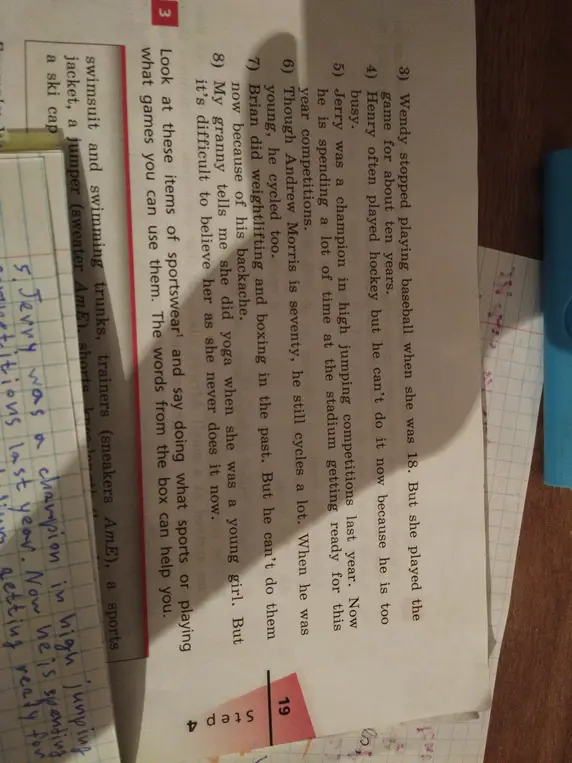 3) Wendy stopped playing baseball when she was 18. But she played the
game for about ten years.
4) Henry often played hockey but he can't do it now because he is too
busy.
5) Jerry was a champion in high jumping competitions last year. Now
he is spending a lot of time at the stadium getting ready for this
year competitions.
6) Though Andrew Morris is seventy, he still cycles a lot. When he was
young, he cycled too.
7) Brian did weightlifting and boxing in the past. But he can't do them
now because of his backache.
8) My granny tells me she did yoga when she was a young girl. But
it's difficult to believe her as she never does it now.
19
Step 4
3 Look at these items of sportswear¹ and say doing what sports or playing
what games you can use them. The words from the box can help you.
swimsuit and swimming trunks, trainers (sneakers AmE), a sports
jacket, a jumper (sweater AmE), shorts
a ski cap
5 Jerry was a champion in high jumping
competitions last year. Now he is spending
getting ready for